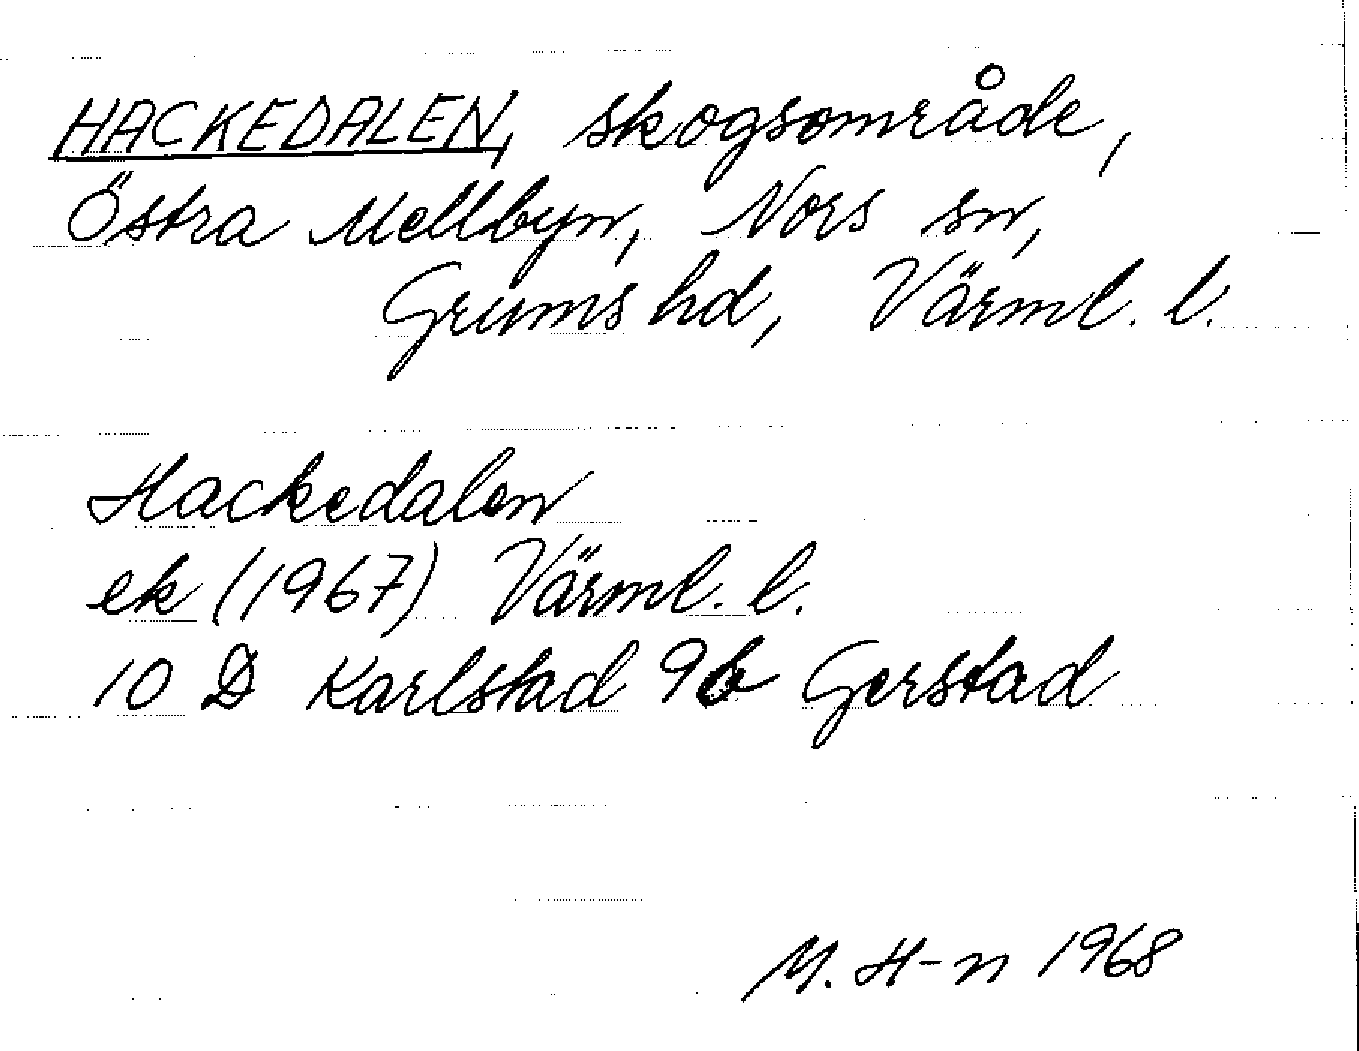 HACKEDALEN, skogsområde,
Östra Mellbyn, Nors sn,
Grums hd, Värml. l.
Hackedalen
ek (1967) Värml. l.
10 D Karlstad 9b Gerstad
M. H-n 1968